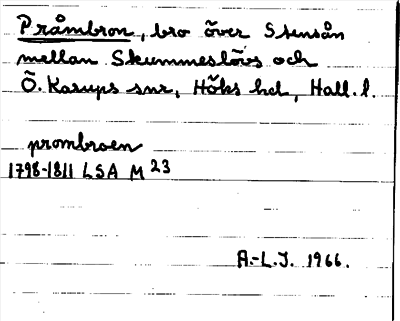 Pråmbron, bro över Stensån
mellan Skummeslövs och
Ö. Karups snr, Höks hd, Hall. l.
prombroen
1798-1811 LSA M 23
A.-L.J. 1966.